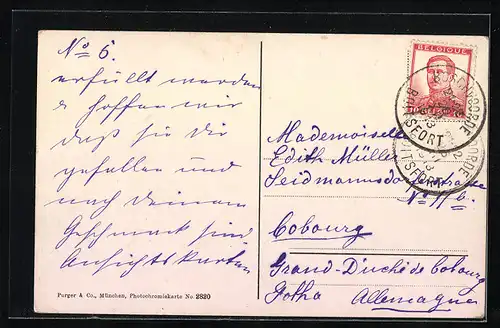 No 6.
erfüllt werden
& hoffen wir
daß sie Dir
gefallen und
nach deinem
Geschmack sind.
Ansichtskarten
Purger & Co., München, Photochromiekarte No. 2820
BELGIQUE
BOITSFORT
BOSCHVOORDE
BOITSFORT
Mademoiselle
Edith Müller
Seidmannsdorferstrasse
No 11 b.
Cobourg
Grand-Duché de Cobourg
Gotha Allemagne